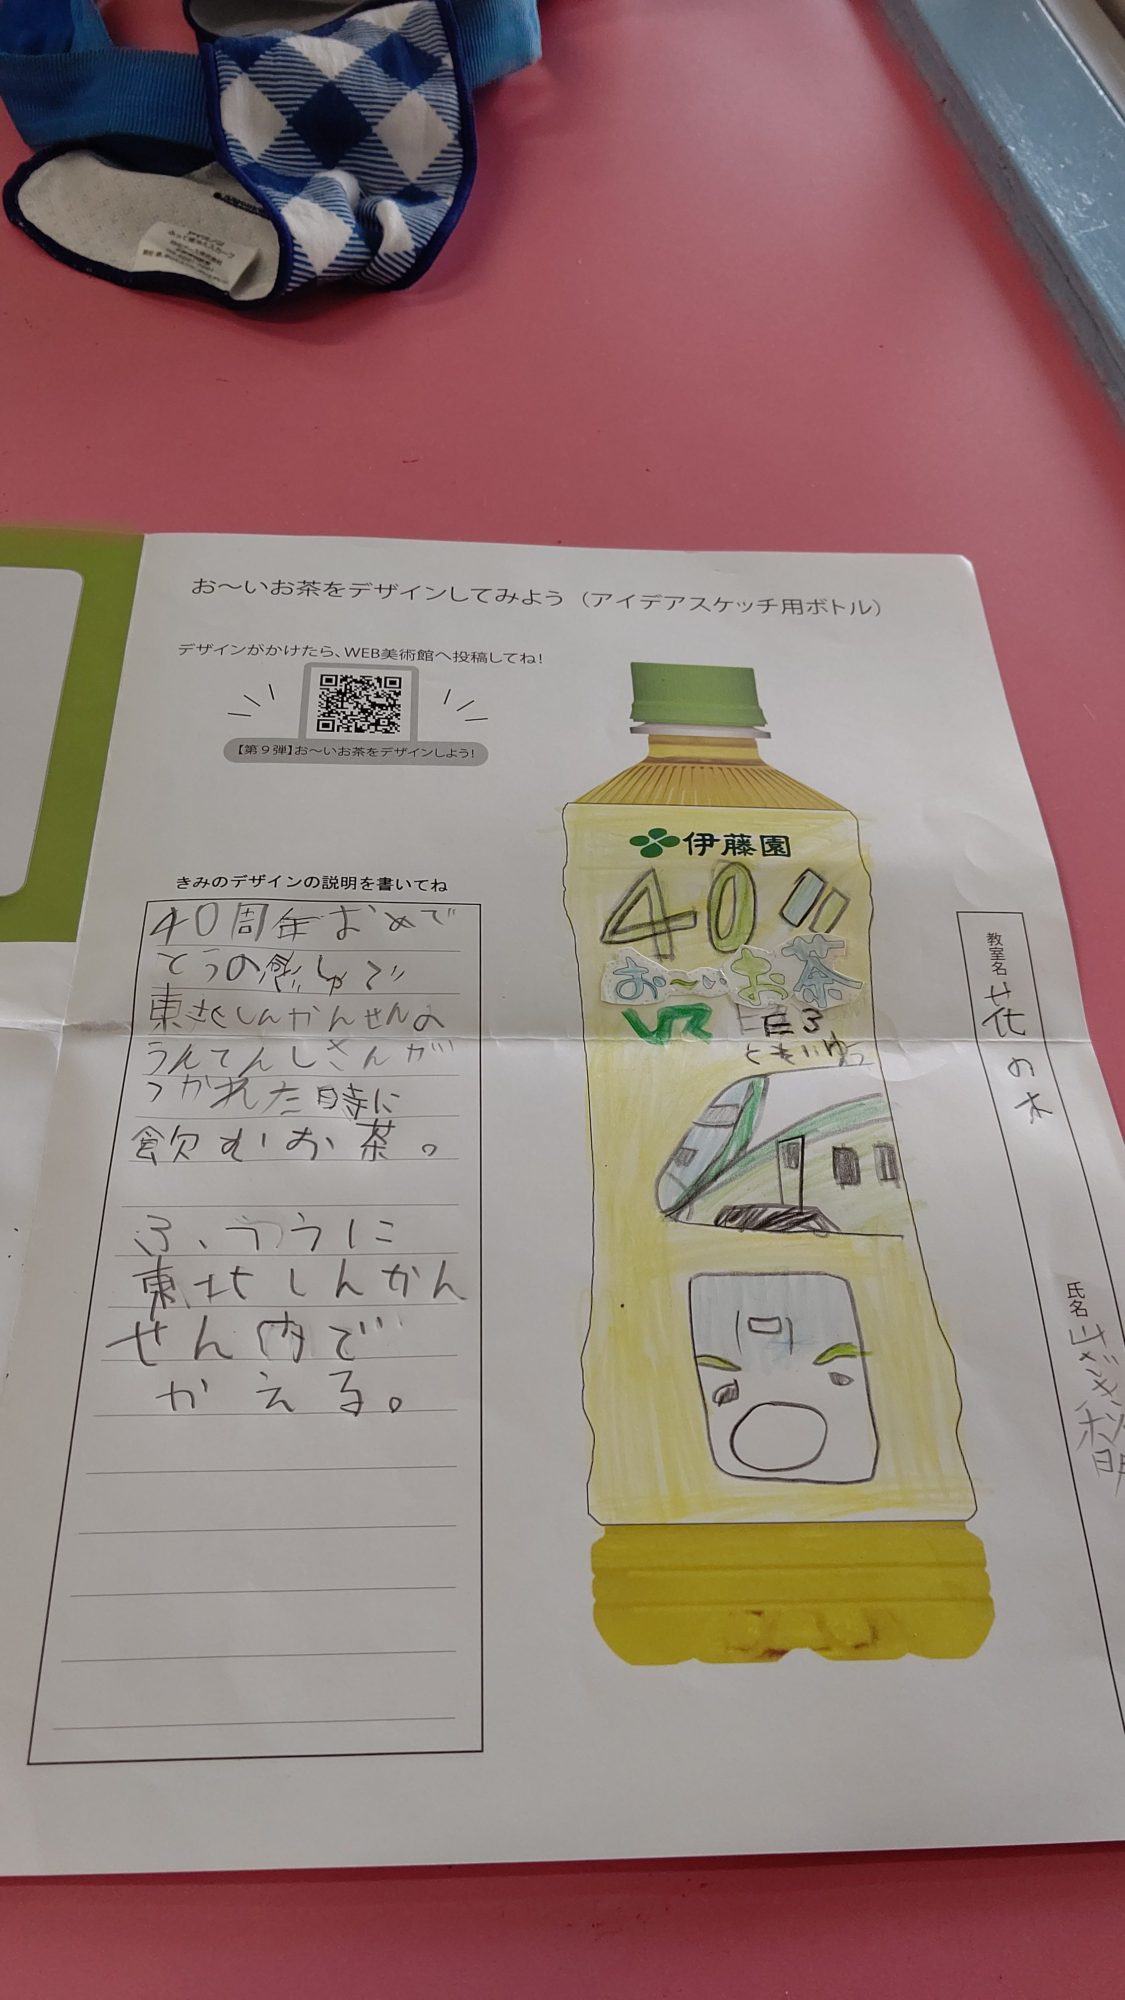 お〜いお茶をデザインしてみよう（アイデアスケッチ用ボトル）
デザインがかけたら、WEB美術館へ投稿してね！
【第９弾】お〜いお茶をデザインしよう！
きみのデザインの説明を書いてね
40周年おめで
とうの
東北しんかんせんの
うんてんしさんが
つかれた時に
飲むお茶。
ふつうに
東北しんかん
せん内で
かえる。
伊藤園
40
お〜いお茶
教室名 花の木
氏名